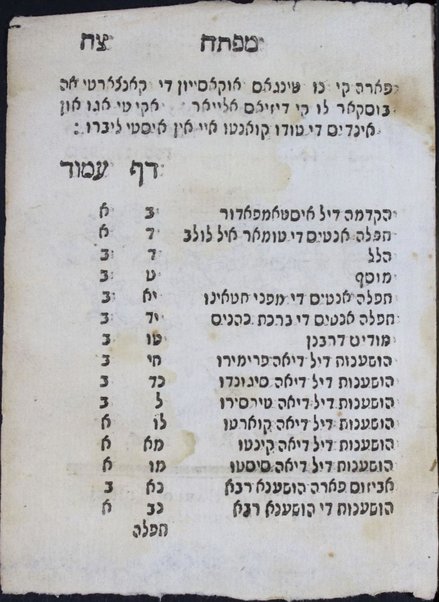 מפתח צח
פארה קי נו טינגאס אוקאסייון די קאנסארטי אה
בוסקאר לו קי דיזיאס אלייאר אקי טי אגו און
אינדיס די טודו קואנטו איי אין איסטי ליברו :
דף עמוד
הקדמה דיל איסטאמפאדור ב א
תפלה אנטיס די טומאר איל לולב ד א
הלל ד ב
מוסף ט ב
תפלה אנטיס די מפני חטאינו יא ב
תפלה אנטיס די ברכת כהנים יד ב
מודים דרבנן טו ב
הושענות דיל דיאה פרימירו חי ב
הושענות דיל דיאה סיגונדו כד ב
הושענות דיל דיאה טירסירו ל ב
הושענות דיל דיאה קוארטו לו א
הושענות דיל דיאה קינטו מא א
הושענות דיל דיאה סיסטו מו א
אביזוס פארה הושענא רבא נא ב
הושענות די הושענא רבא נב א
תפלה